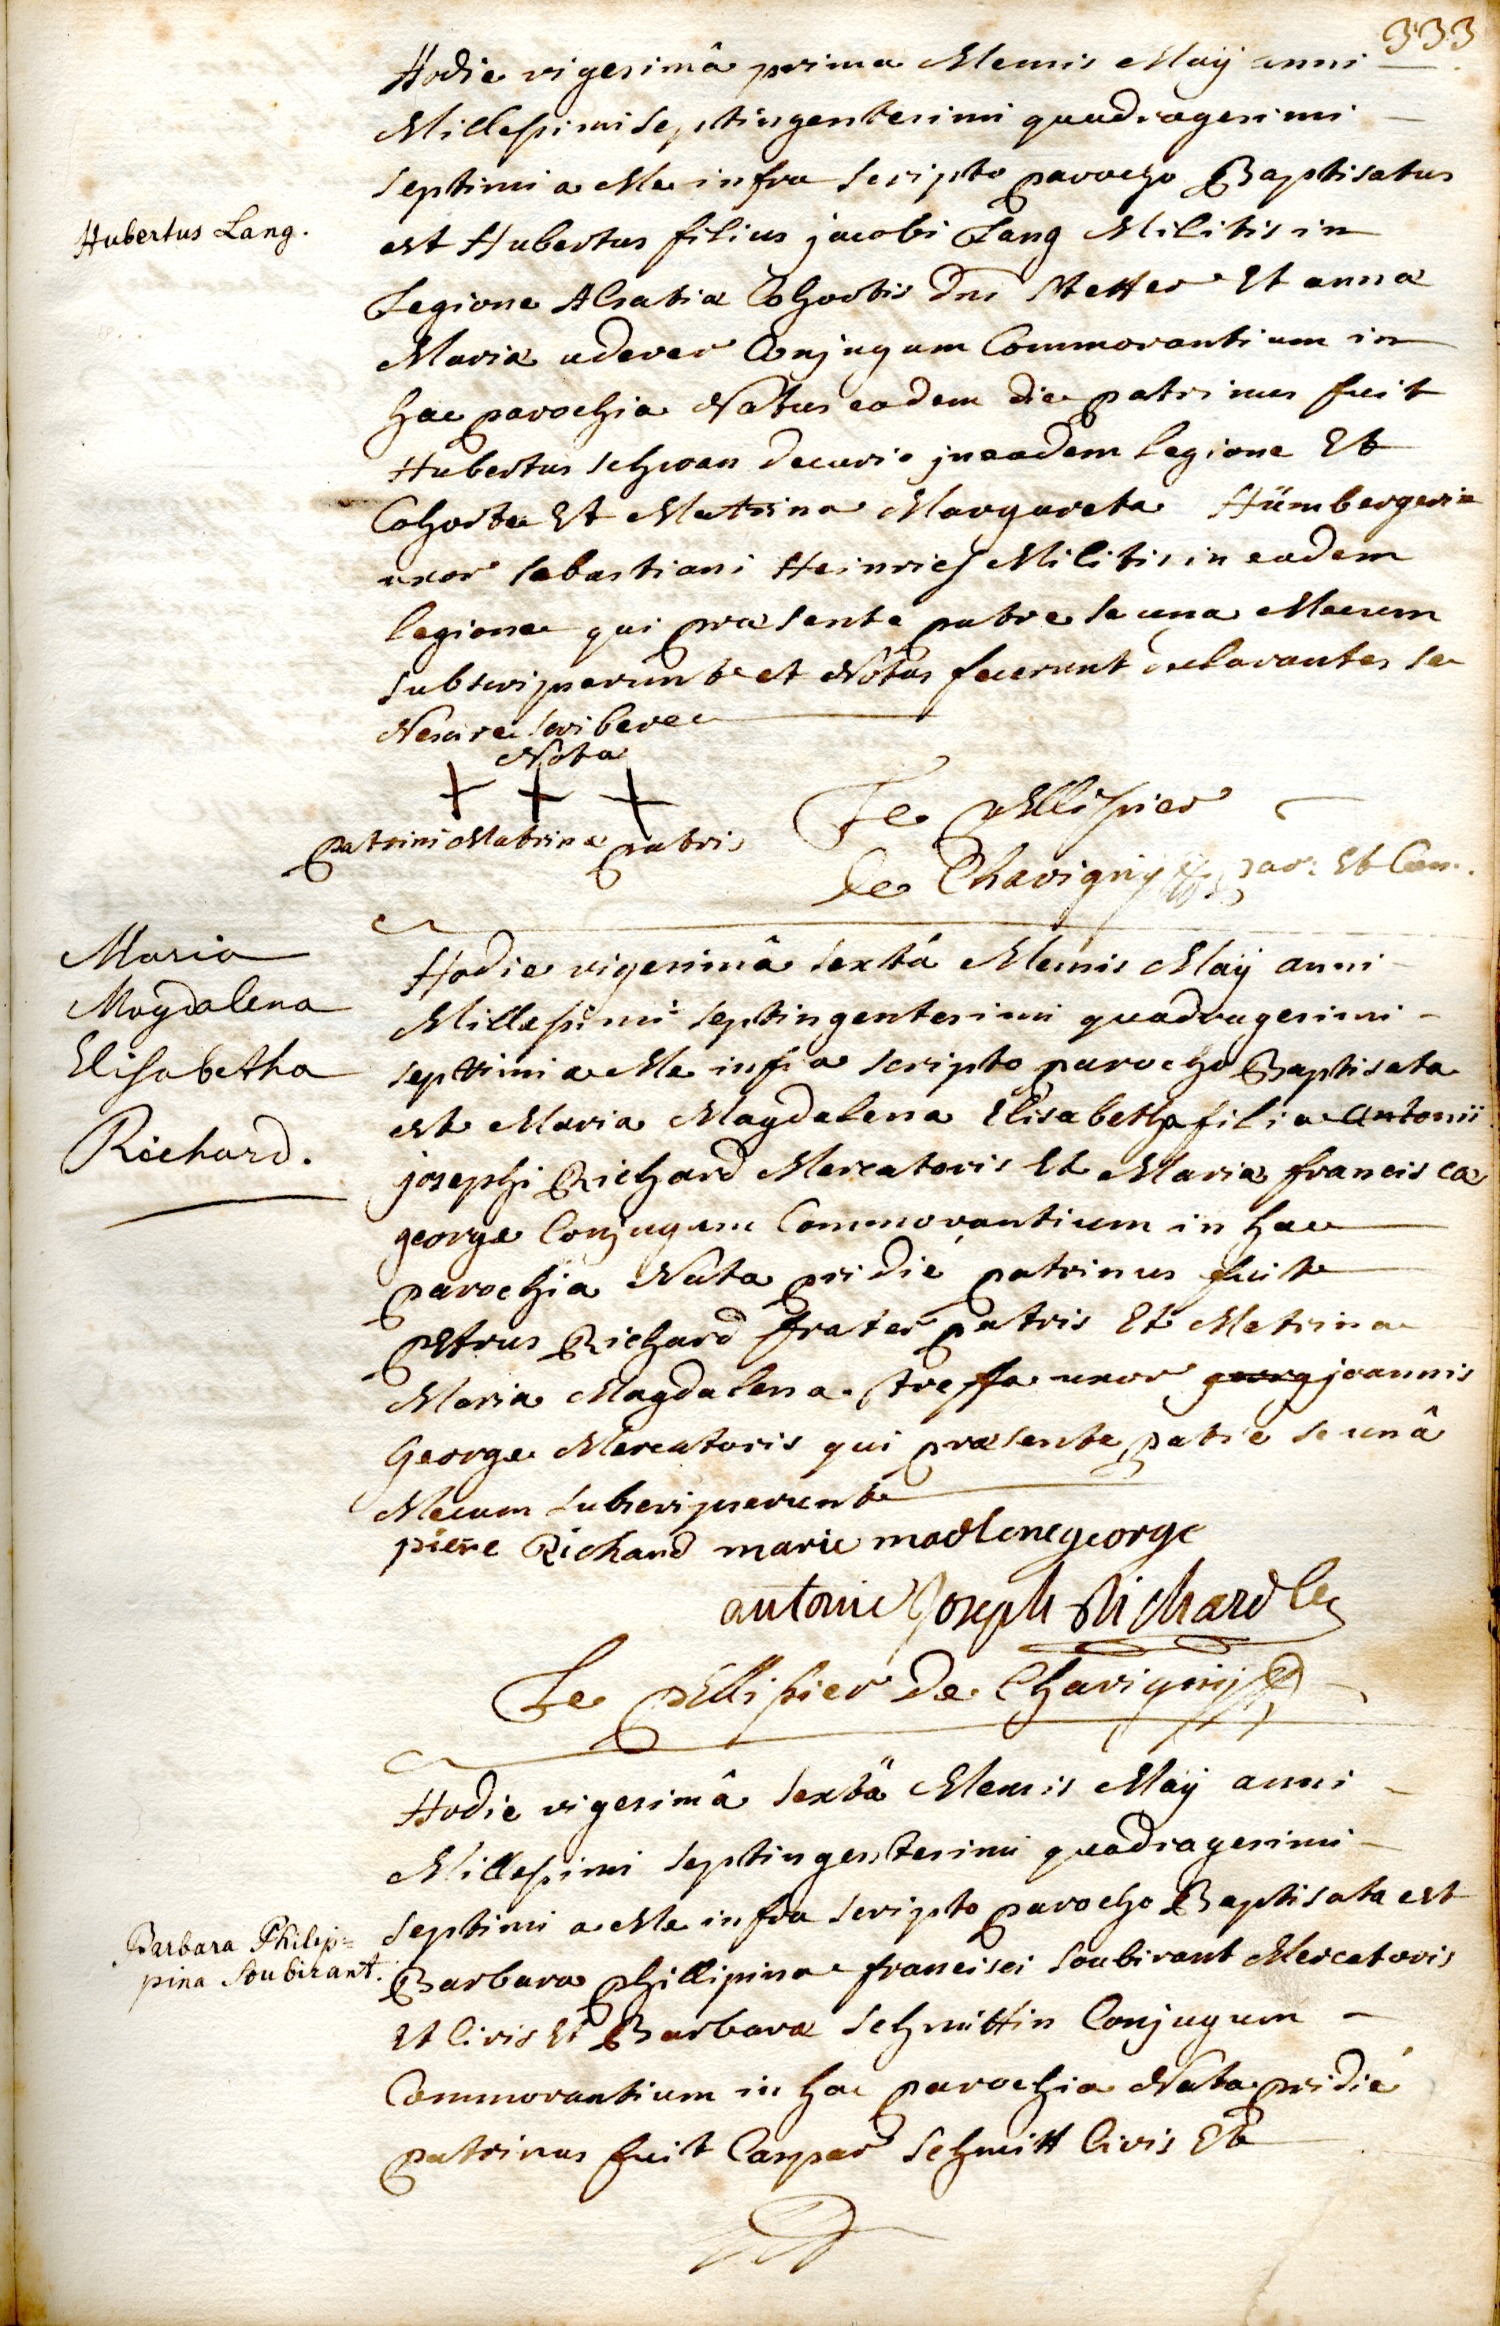 333
Hodie vigesimâ prima Mensis Maÿ anni
Millesimi septingentesimi quadragesimi
septimi a Me infra scripto parocho Baptisatus
Hubertus Lang.
est Hubertus filius jacobi Lang Militis in
Legione Alsatiæ Cohortis Dni Stetter Et annæ
Mariæ aderer Conjugum Commorantium in
hac parochia Natus eadem die patrinus fuit
Hubertus schwan decurio in eadem legione Et
Cohorte Et Matrina Margareta Hümbergerin
uxor sebastiani Heinrich Militis in eadem
legione qui præsente patre se una Mecum
subscripserunt et Notas fecerunt declarantes se
Nescire scribere
Nota
+ + +
patrini Matrinæ patris
Le pellissier
de Chavigny par: Et Can.
Maria
Magdalena
Elisabetha
Richard.
Hodie vigesimâ sextâ Mensis Maÿ anni
Millesimi septingentesimi quadragesimi
septimi a Me infra scripto parocho Baptisata
est Maria Magdalena Elisabetha filia antonii
josephi Richard Mercatoris Et Mariæ franciscæ
george Conjugum Commorantium in hac
parochia Nata pridié patrinus fuit
petrus Richard frater patris Et Matrina
Maria Magdalena treffa uxor georg joannis
George Mercatoris qui præsente patre se unâ
Mecum subscripserunt
pierre Richard marie madlene george
antoine Joseph Richard le
Le pellissier de Chavigny
Hodie vigesimâ sextâ Mensis Maÿ anni
Millesimi septingentesimi quadragesimi
septimi a Me infra scripto parocho Baptisata est
Barbara Philip=
pina Soubirant.
Barbara phillipina francisci soubirant Mercatoris
Et Civis Et Barbaræ schmittin Conjugum
Commorantium in hac parochia Nata pridié
patrinus fuit Caspar schmitt Civis Et